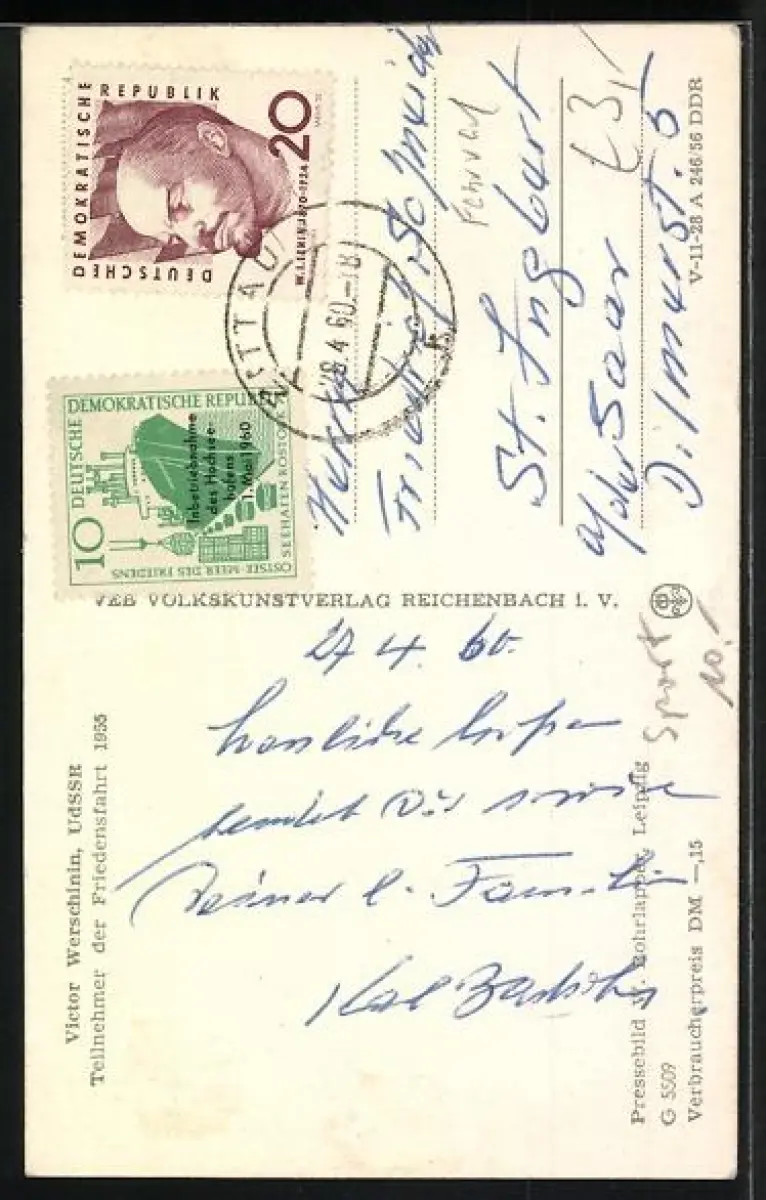 Victor Werschinin, UdSSR
Teilnehmer der Friedensfahrt 1955
27 4. 60.
herzliche Grüße
sendet Dir sowie
Deiner l. Familie
Karl
Pressebild W. Rohrlapper, Leipzig
G 5509
Verbraucherpreis DM —,15
VEB VOLKSKUNSTVERLAG REICHENBACH i. V.
DEUTSCHE
DEMOKRATISCHE
REPUBLIK
20
W.I.LENIN 1870-1924
DEUTSCHE
DEMOKRATISCHE REPUBLIK
10
Inbetriebnahme
des Hochsee-
hafens
1. Mai 1960
SEEHAFEN ROSTOCK
OSTSEE-MEER DES FRIEDENS
ZITTAU
28.4.60.-18
Herrn
Friedrich Schneider
St. Ingbert
Saar
5
V-11-28 A 246/56 DDR
Fahrrad
£3,/
Sport
10./